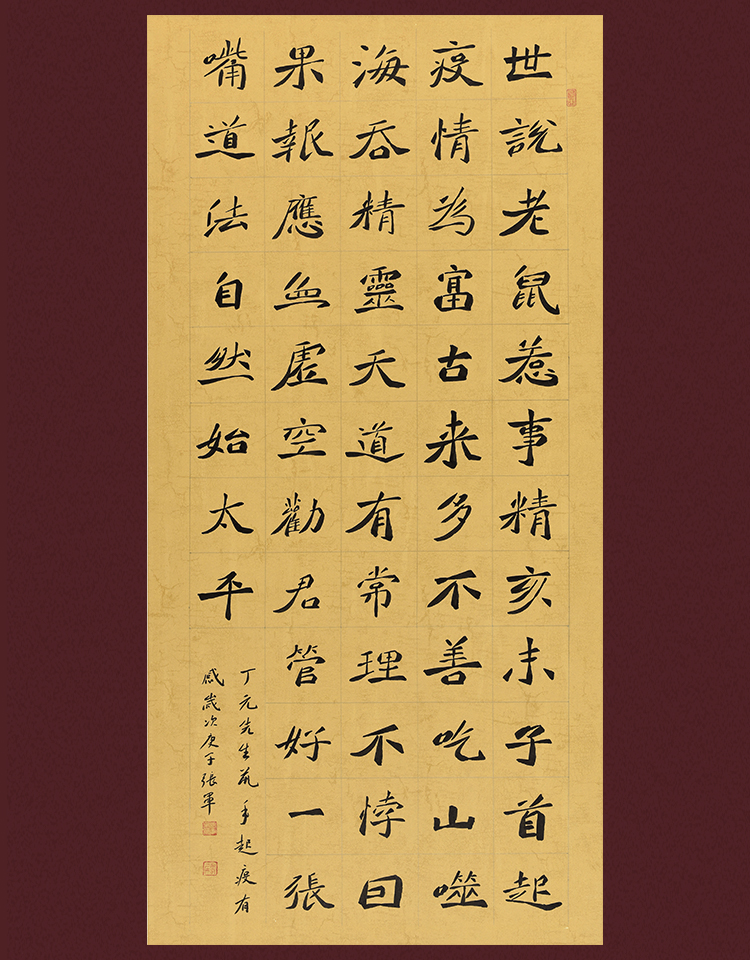 世說老鼠惹事精亥末子首起
疫情為富古来多不善吃山噬
海吞精靈天道有常理不悖囙
果報應血虛空勸君管好一張
嘴道法自然始太平
丁元先生鼠年起疫有
感歲次庚子張軍